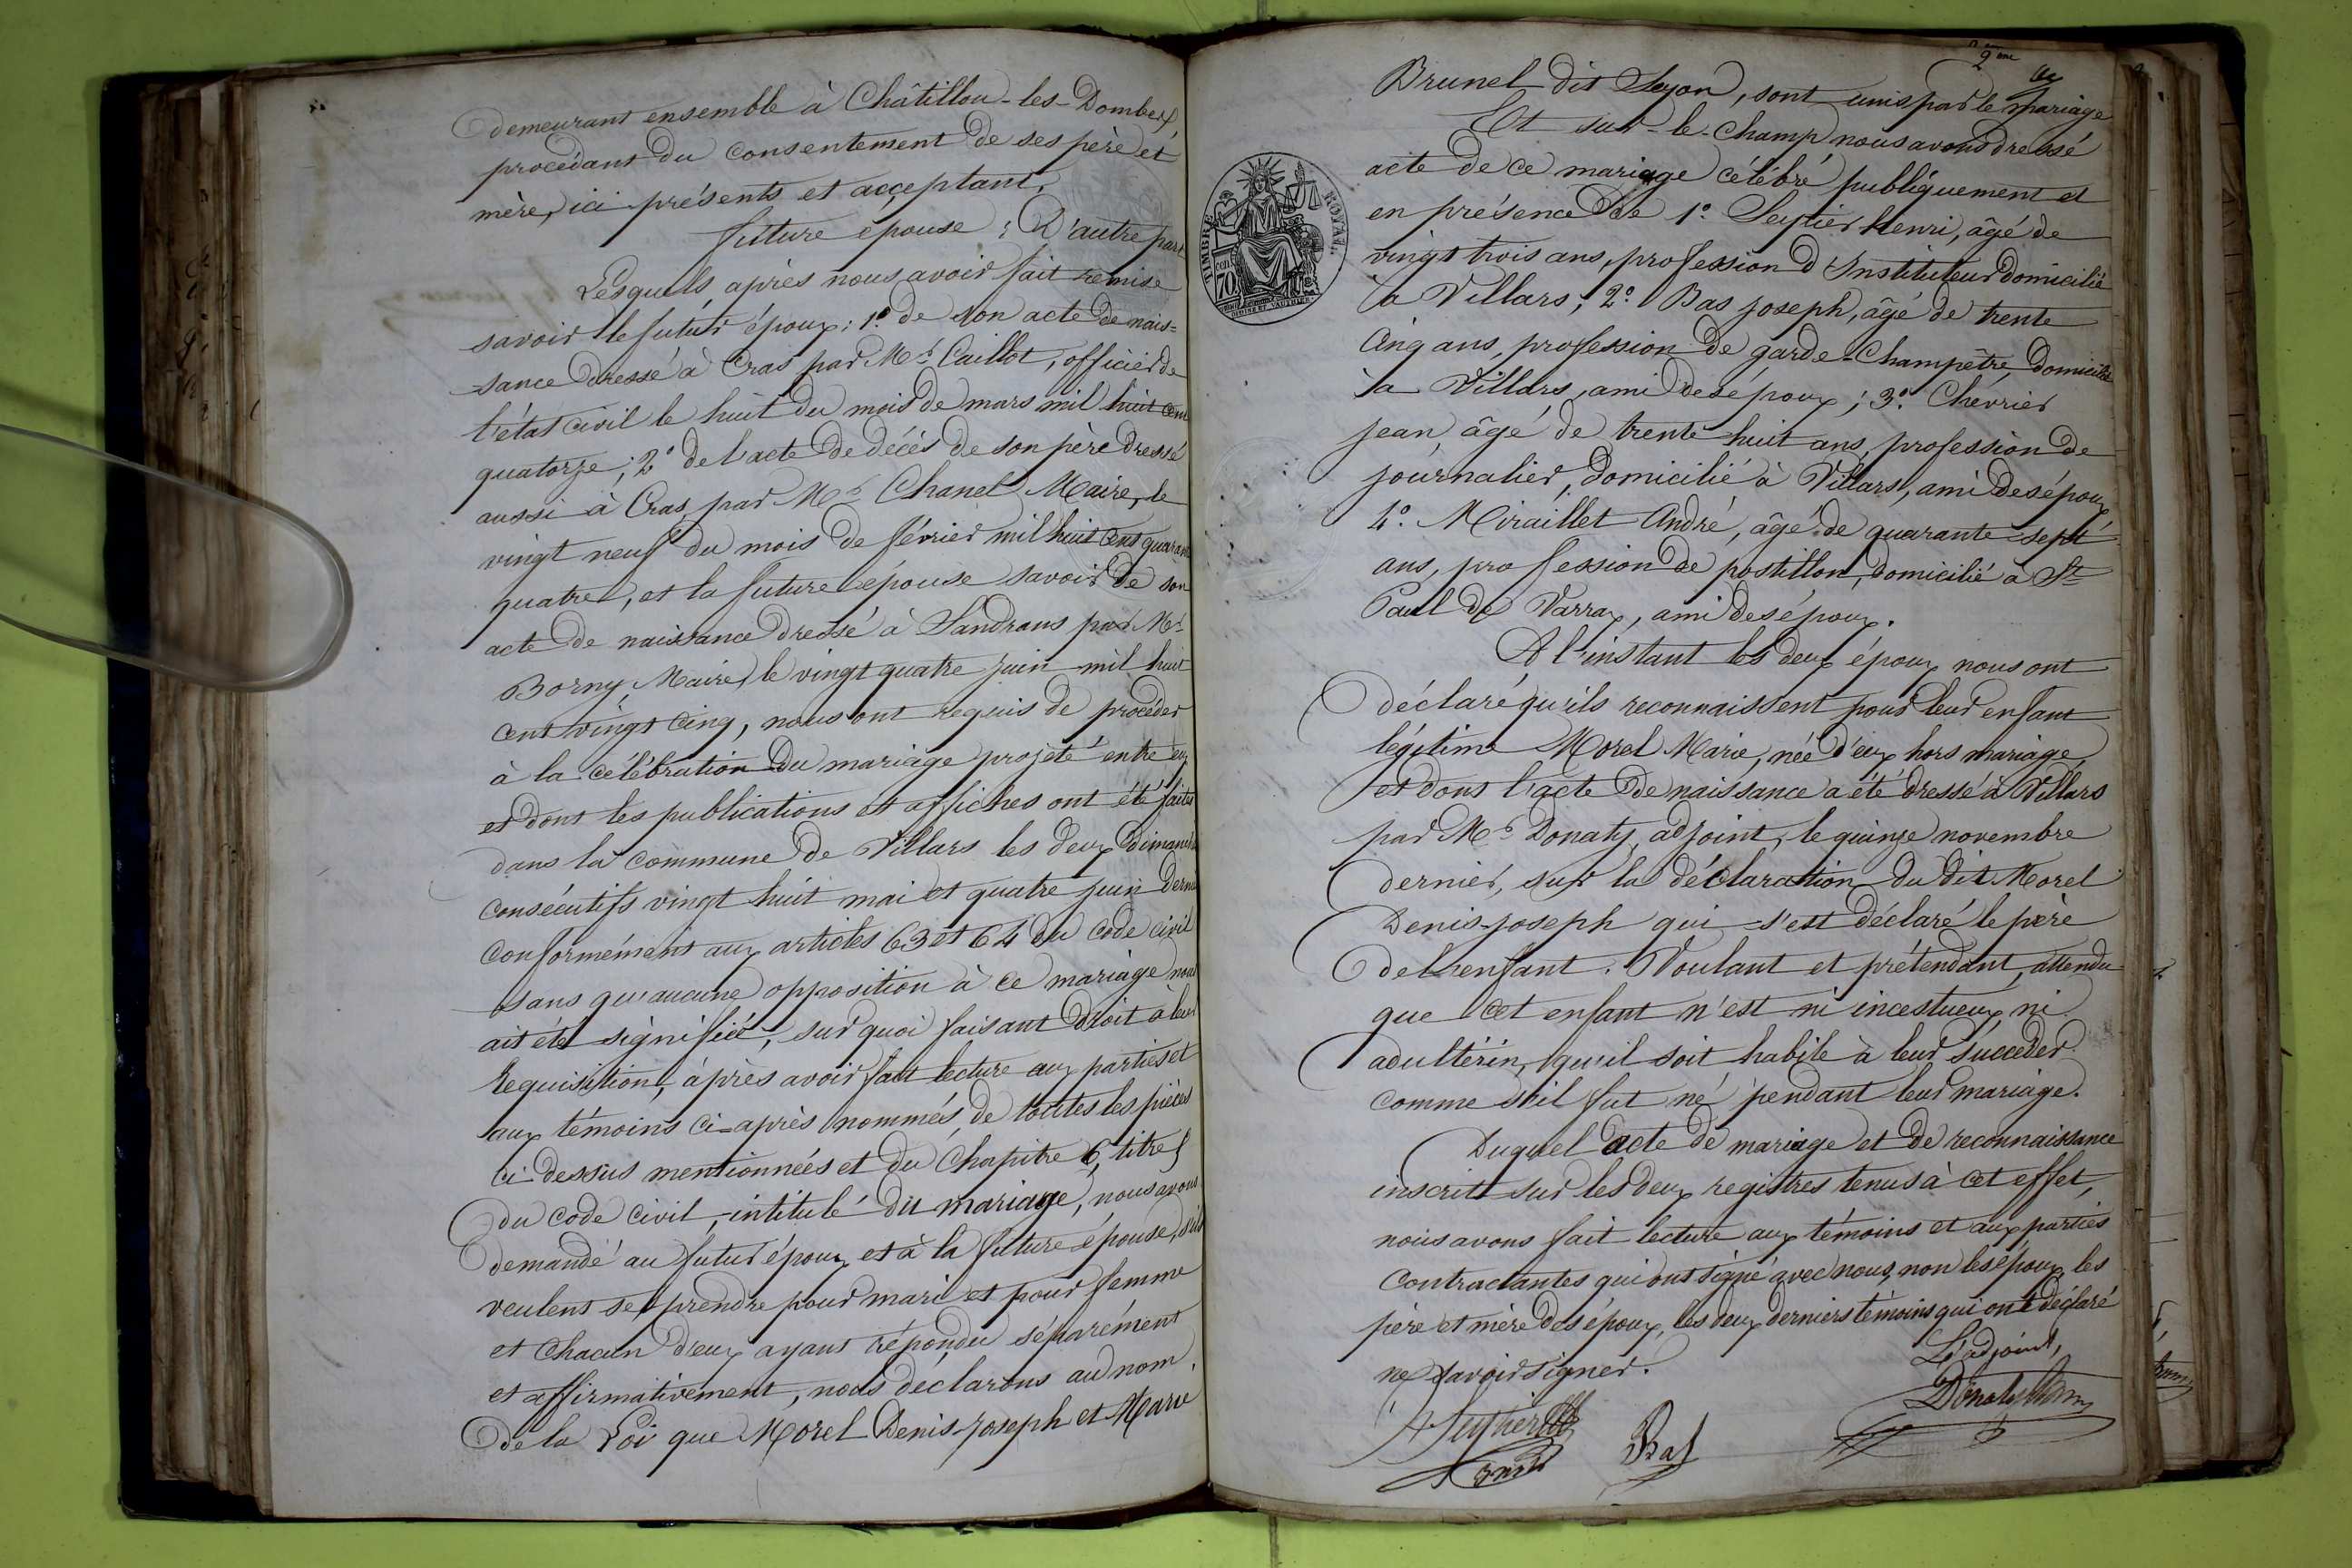 demeurant ensemble à Châtillon-les-Dombes,
procédant du consentement de ses père et
mère, ici présents et acceptant,
future épouse ; D'autre part
Lesquels après nous avoir fait remise
savoir le futur époux : 1º de son acte de nais=
sance dressé à Cras par Mr Caillot, officier de
l'état civil le huit du mois de mars mil huit cent
quatorze ; 2º de l'acte de décès de son père dressé
aussi à Cras par Mr Chanel Maire, le
vingt neuf du mois de février mil huit cent quarante
quatre, et la future épouse savoir de son
acte de naissance dressé à Sandrans par Mr
Borny Maire, le vingt quatre juin mil huit
cent vingt cinq, nous ont requis de procéder
à la célébration du mariage projeté entre eux
et dont les publications et affiches ont été faites
dans la commune de Villars les deux dimanches
consécutifs vingt huit mai et quatre juin dernier
conformément aux articles 63 et 64 du code civil
sans qu'aucune opposition à ce mariage nous
ait été signifiée, sur quoi faisant droit à leur
requisition, après avoir fait lecture aux parties et
aux témoins ci-après nommés, de toutes les pièces
ci-dessus mentionnées et du Chapitre 6, titre 5
du code civil, intitulé du mariage, nous avons
demandé au futur époux et à la future épouse, s'ils
veulent se prendre pour mari et pour femme
et chacun d'eux ayant répondu séparément
et affirmativement, nous déclarons au nom
de la Loi que Morel Denis-Joseph et Marie
2ème
Brunel dit Seyon, sont unis par le mariage
Et sur-le-champ nous avons dressé
acte de ce mariage célébré publiquement et
en présence de 1º Seytier henri, âgé de
vingt trois ans, profession d'Instituteur domicilié
à Villars ; 2º Bas joseph, âgé de trente
Cinq ans, profession de garde-Champêtre, domicilié
à Villars, ami des époux ; 3º Chévrier
jean, âgé de trente huit ans, profession de
journalier, domicilié à Villars, ami des époux
4º Miraillet André, âgé de quarante-sept
ans, profession de postillon, domicilié à St
Paul de Varrax, ami des époux.
A l'instant les deux époux nous ont
déclaré qu'ils reconnaissent pour leur enfant
légitime Morel Marie, née d'eux hors mariage,
et dont l'acte de naissance a été dressé à Villars
par Mr Donaty, adjoint, le quinze novembre
dernier, sur la déclaration du dit Morel
Denis-joseph qui s'est déclaré le père
de l'enfant. Voulant et prétendant, attendu
que cet enfant n'est ni incestueux, ni
adultérin, qu'il soit habile à leur succéder
comme s'il fut né pendant leur mariage.
Duquel acte de mariage et de reconnaissance
inscrit sur les deux registres tenus à cet effet,
nous avons fait lecture aux témoins et aux parties
contractantes qui ont signé avec nous, non les époux, les
père et mère des époux, les deux derniers témoins qui ont déclaré
ne savoir signer.
L'adjoint,
Donaty
Seytier
Bas
TIMBRE ROYAL
70 cen